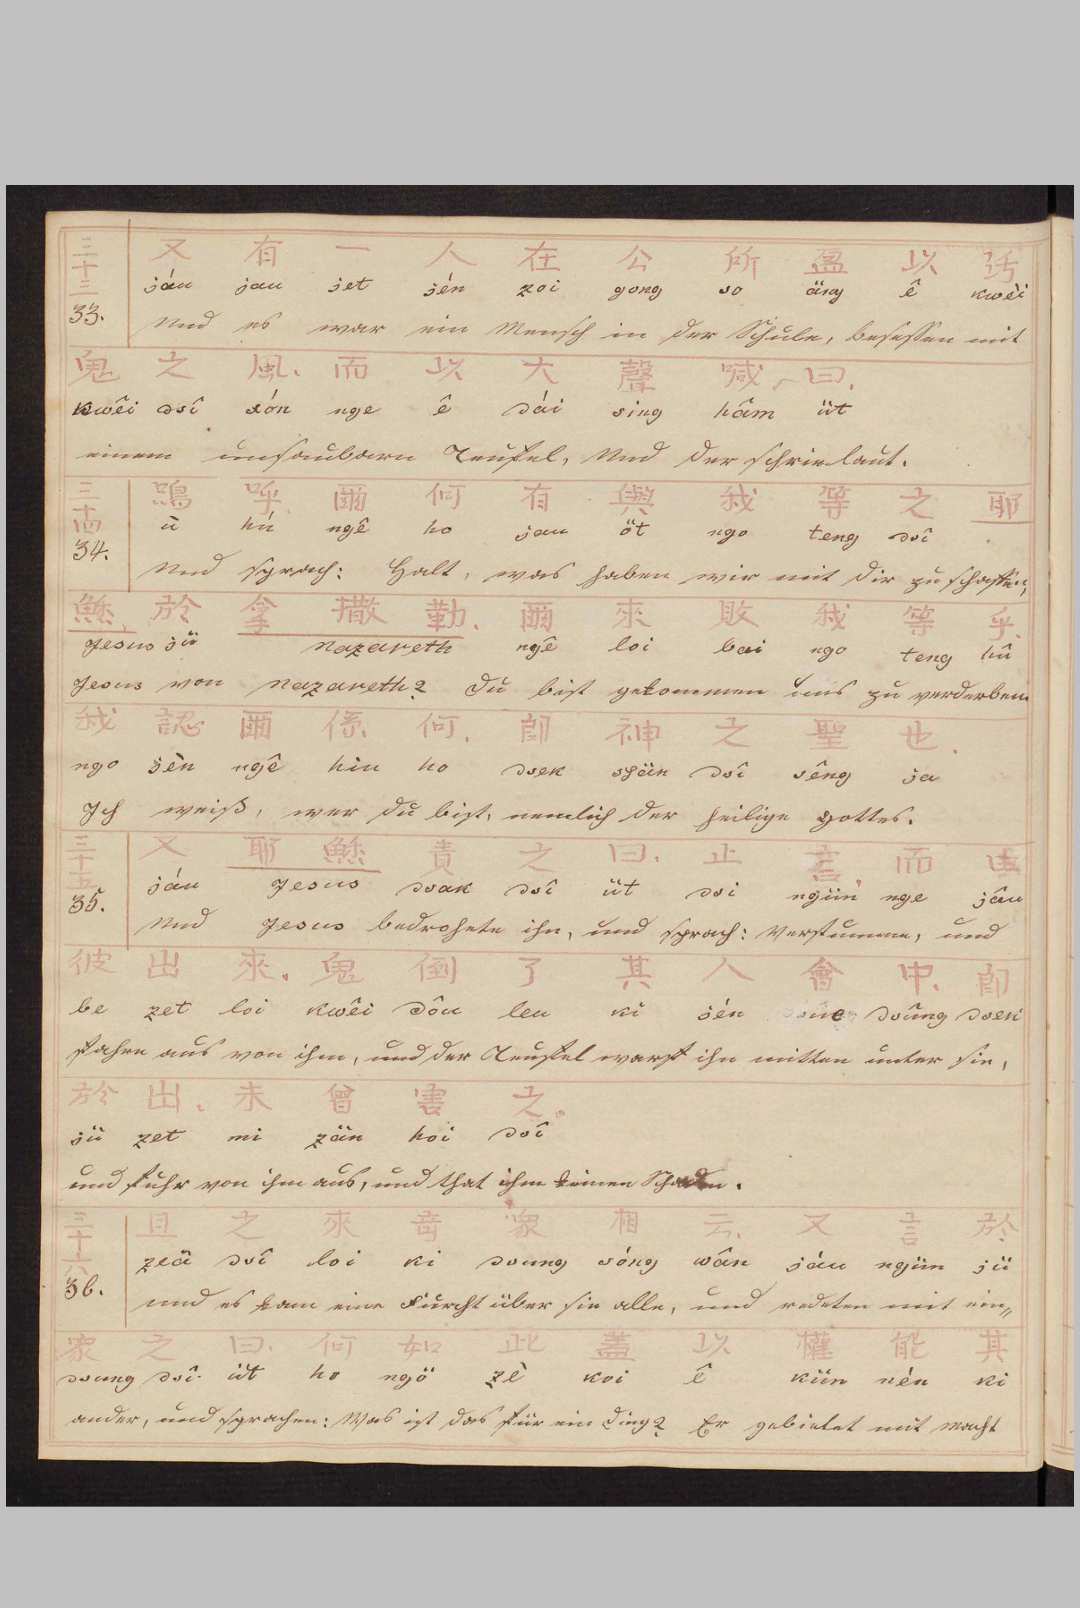 三十三 又 有 一 人 在 公 所 盈 以 污
jáu jau jet jén zoi gong so äng ê kwêi
33. Und es war ein Mensch in der Schule, besessen mit
鬼 之 風. 而 以 大 聲 喊 曰.
kwêi dsî són nge ê dái sing hâm üt
einem unsaubarn Teufel, Und der schrie laut.
三十四 鳴 呼. 爾 何 有 與 我 等 之 耶
ù hú ngê ho jau öt ngo teng dsî
34. Und sprach: Halt, was haben wir mit dir zu schaffen,
穌 於 拿 撒 勒. 爾 來 敗 我 等 乎.
Jesus jü Nazareth ngê loi bai ngo teng hû
Jesus von Nazareth? Du bist gekommen uns zu verderben.
我 認 爾 係 何. 即 神 之 聖 也.
ngo jèn ngê hiu ho dsek schän dsî sêng ja
Ich weiß, wer du bist, nemlich der heilige Gottes.
三十五 又 耶 穌 責 之 曰. 止 言. 而 由
jáu Jesus dsak dsî üt dsi ngün nge jâu
35. Und Jesus bedrohete ihn, und sprach: Verstumme, und
彼 出 來. 鬼 倒 了 其 人 會 中. 即
be zet loi kwêi dôu leu ki jén dsûng dsek
fahre aus von ihm, und der Teufel warf ihn mitten unter sie,
於 出. 未 曾 害 之.
jü zet mi zän hoi dsî
und fuhr von ihm aus, und that ihm keinen Schaden.
三十六 且 之 來 奇 衆 相 云. 又 言 於
zeä dsî loi ki dsung sóng wân jáu ngün jü
36. und es kam eine Furcht über sie alle, und redeten mit ein=
衆 之 曰. 何 如 此 蓋 以 權 能 其
dsung dsî üt ho ngö zê koi ê kün nén ki
ander, und sprachen: Was ist das für ein Ding? Er gebietet mit Macht